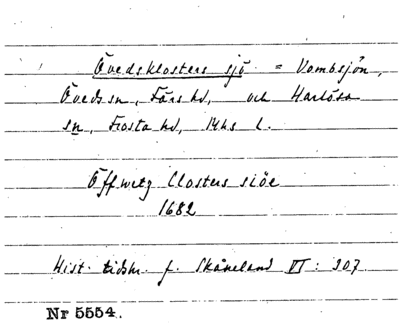 Övedsklosters sjö = Vombsjön,
Öveds sn, Färs hd, och Harlösa
sn, Frosta hd, Mhs l.
Öffwetz Closters siöe
1682
Hist. tidskr. f. Skåneland VI: 307
Nr 5554.